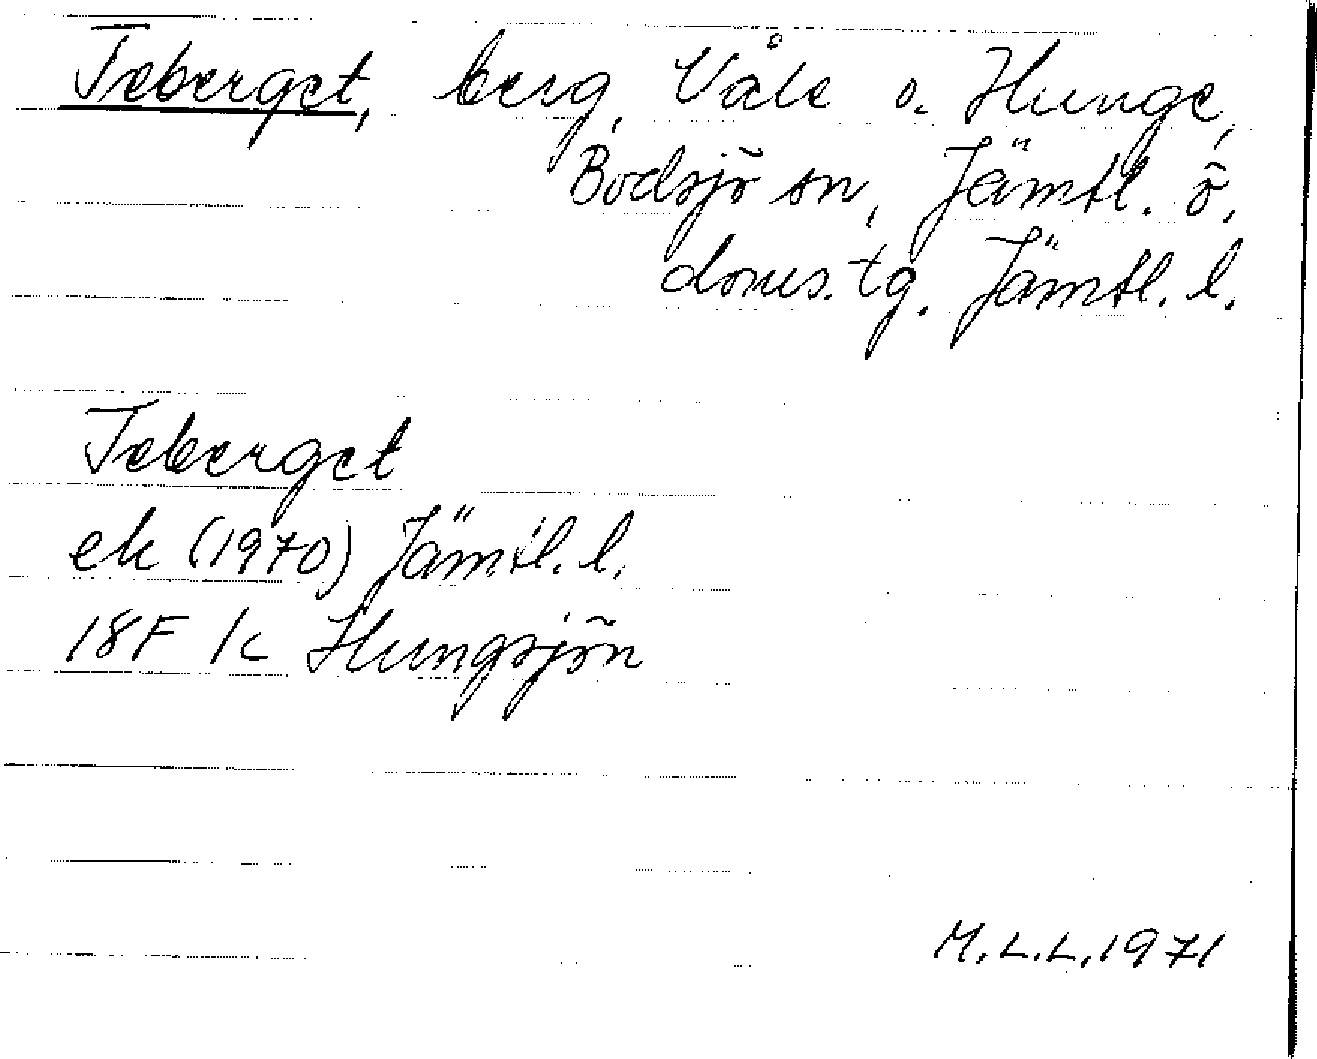 Teberget, berg, Våle o. Hunge,
Bodsjö sn, Jämtl. ö.
doms. tg. Jämtl. l.
Teberget
ek (1970) Jämtl. l.
18F 1c Hungsjön
M.L.L. 1971